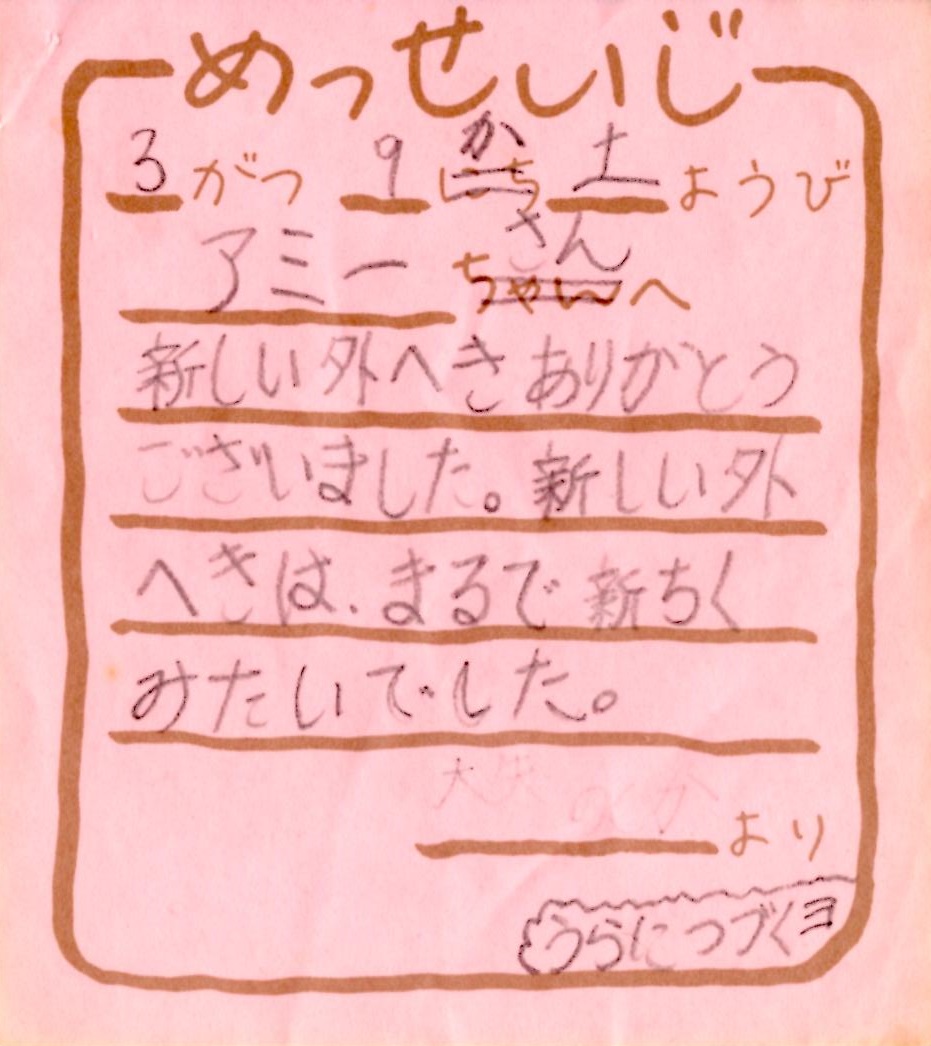 めっせいじ
3がつ 9か 土ようび
アミーさんへ
新しい外へきありがとう
ございました。新しい外
へきは、まるで新ちく
みたいでした。
より
うらにつづくヨ